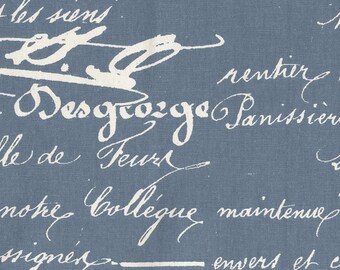 les siens
rentier
Desgeorge Panissièr
lle de Feurs
notre Collégue maintenue
ssignés envers et c